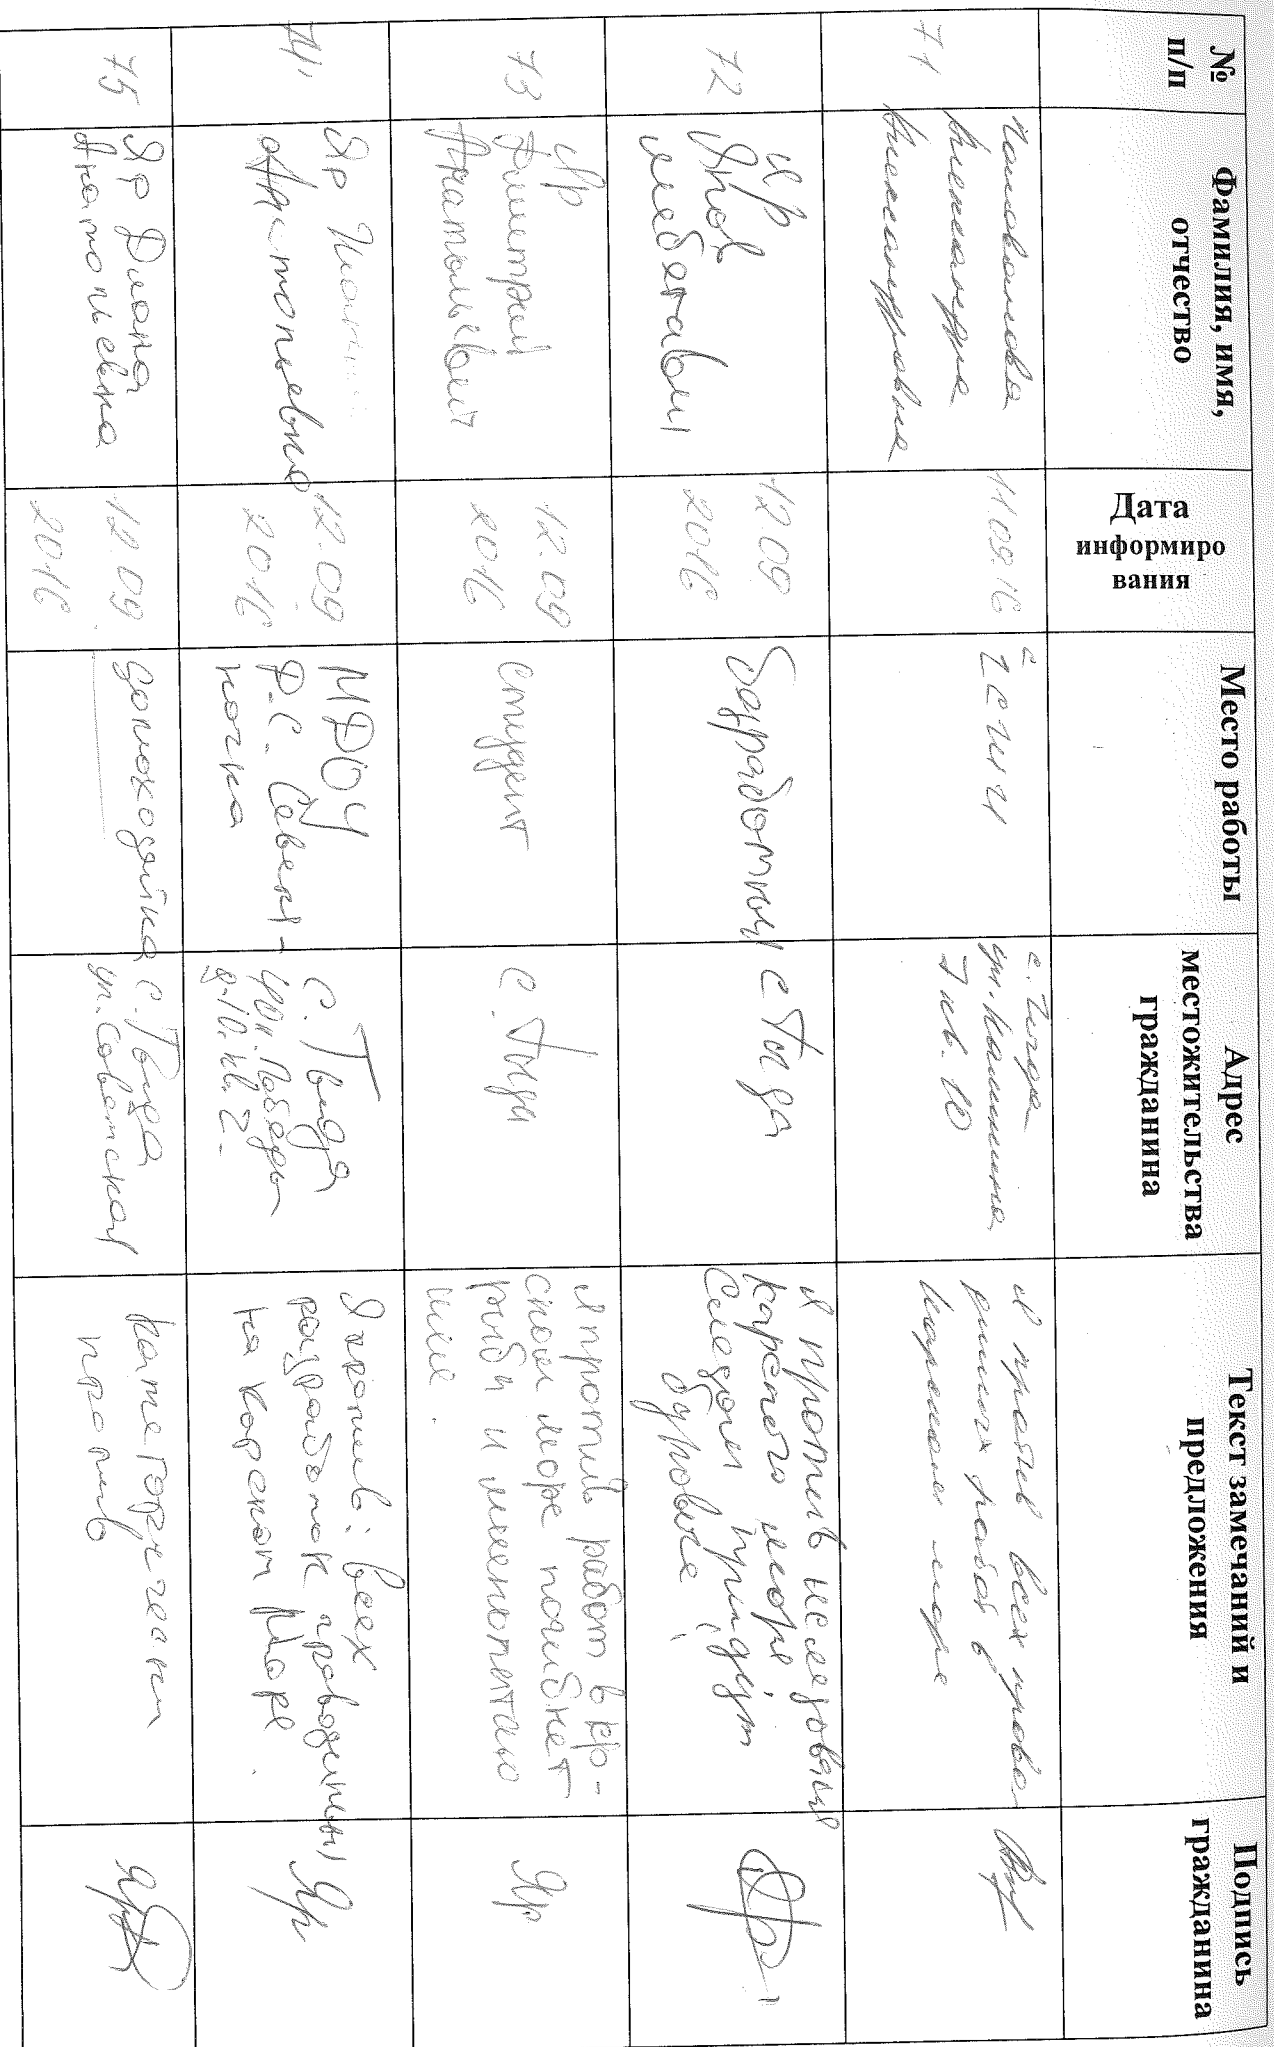 № п/п
Фамилия, имя, отчество
Дата информиро вания
Место работы
Адрес местожительства гражданина
Текст замечаний и предложения
Подпись гражданина
71
Александра
Александровна
11.09.16
с.
кв. 10
Я против всех
работ в
Карском море
72
Яр
Яков
12.09
2016
безработный
с Тида
Я против исследования
Карского моря
Следом придут
буровые
73
Яр
Дмитрий
Анатольевич
12.09
2016
студент
с.
Я против работ в Кар-
ском море погибнет
рыба и
74.
Яр
Анатольевна
12.09
2016
МДОУ
Д.С. Северя-
ночка
с.
ул. Победы
д.10. кв. 2.
Я против: всех
разработок проводимых
на Карском Море.
Яр
75
Яр Диана
Анатольевна
12.09.
2016
домохозяйка
с.
ул. Советская
категорически
против